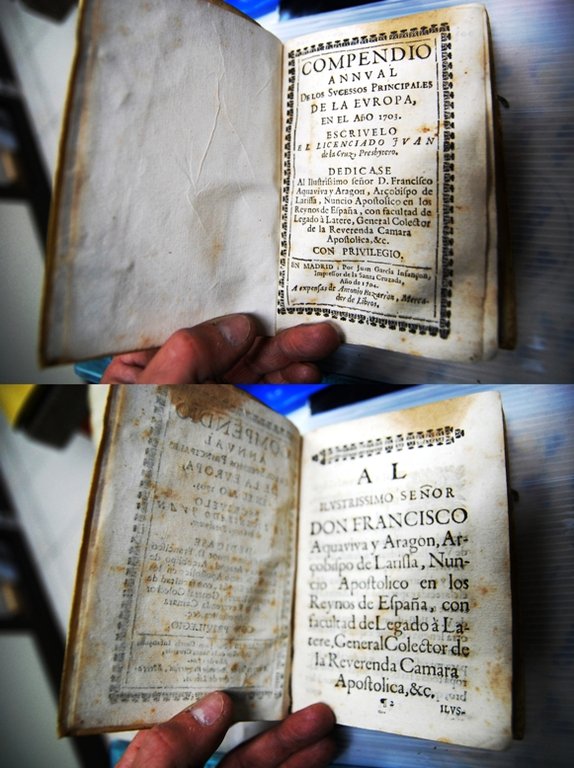 COMPENDIO
ANNVAL
DE LOS SVCESSOS PRINCIPALES
DE LA EVROPA,
EN EL AÑO 1703.
ESCRIVELO
EL LICENCIADO JVAN
de la Cruz, Presbytero.
DEDICASE
Al Ilustrissimo señor D. Francisco
Aquaviva y Aragon, Arçobispo de
Larissa, Nuncio Apostolico en los
Reynos de España, con facultad de
Legado à Latere, General Colector
de la Reverenda Camara
Apostolica, &c.
CON PRIVILEGIO.
EN MADRID: Por Juan Garcia Infançon,
Impressor de la Santa Cruzada,
Año de 1704.
A expensas de Antonio Bizarron, Merca-
der de Libros.
AL
ILVSTRISSIMO SEÑOR
DON FRANCISCO
Aquaviva y Aragon, Ar-
çobispo de Larissa, Nun-
cio Apostolico en los
Reynos de España, con
facultad de Legado à La-
tere, General Colector de
la Reverenda Camara
Apostolica, &c.
¶2
ILVS-